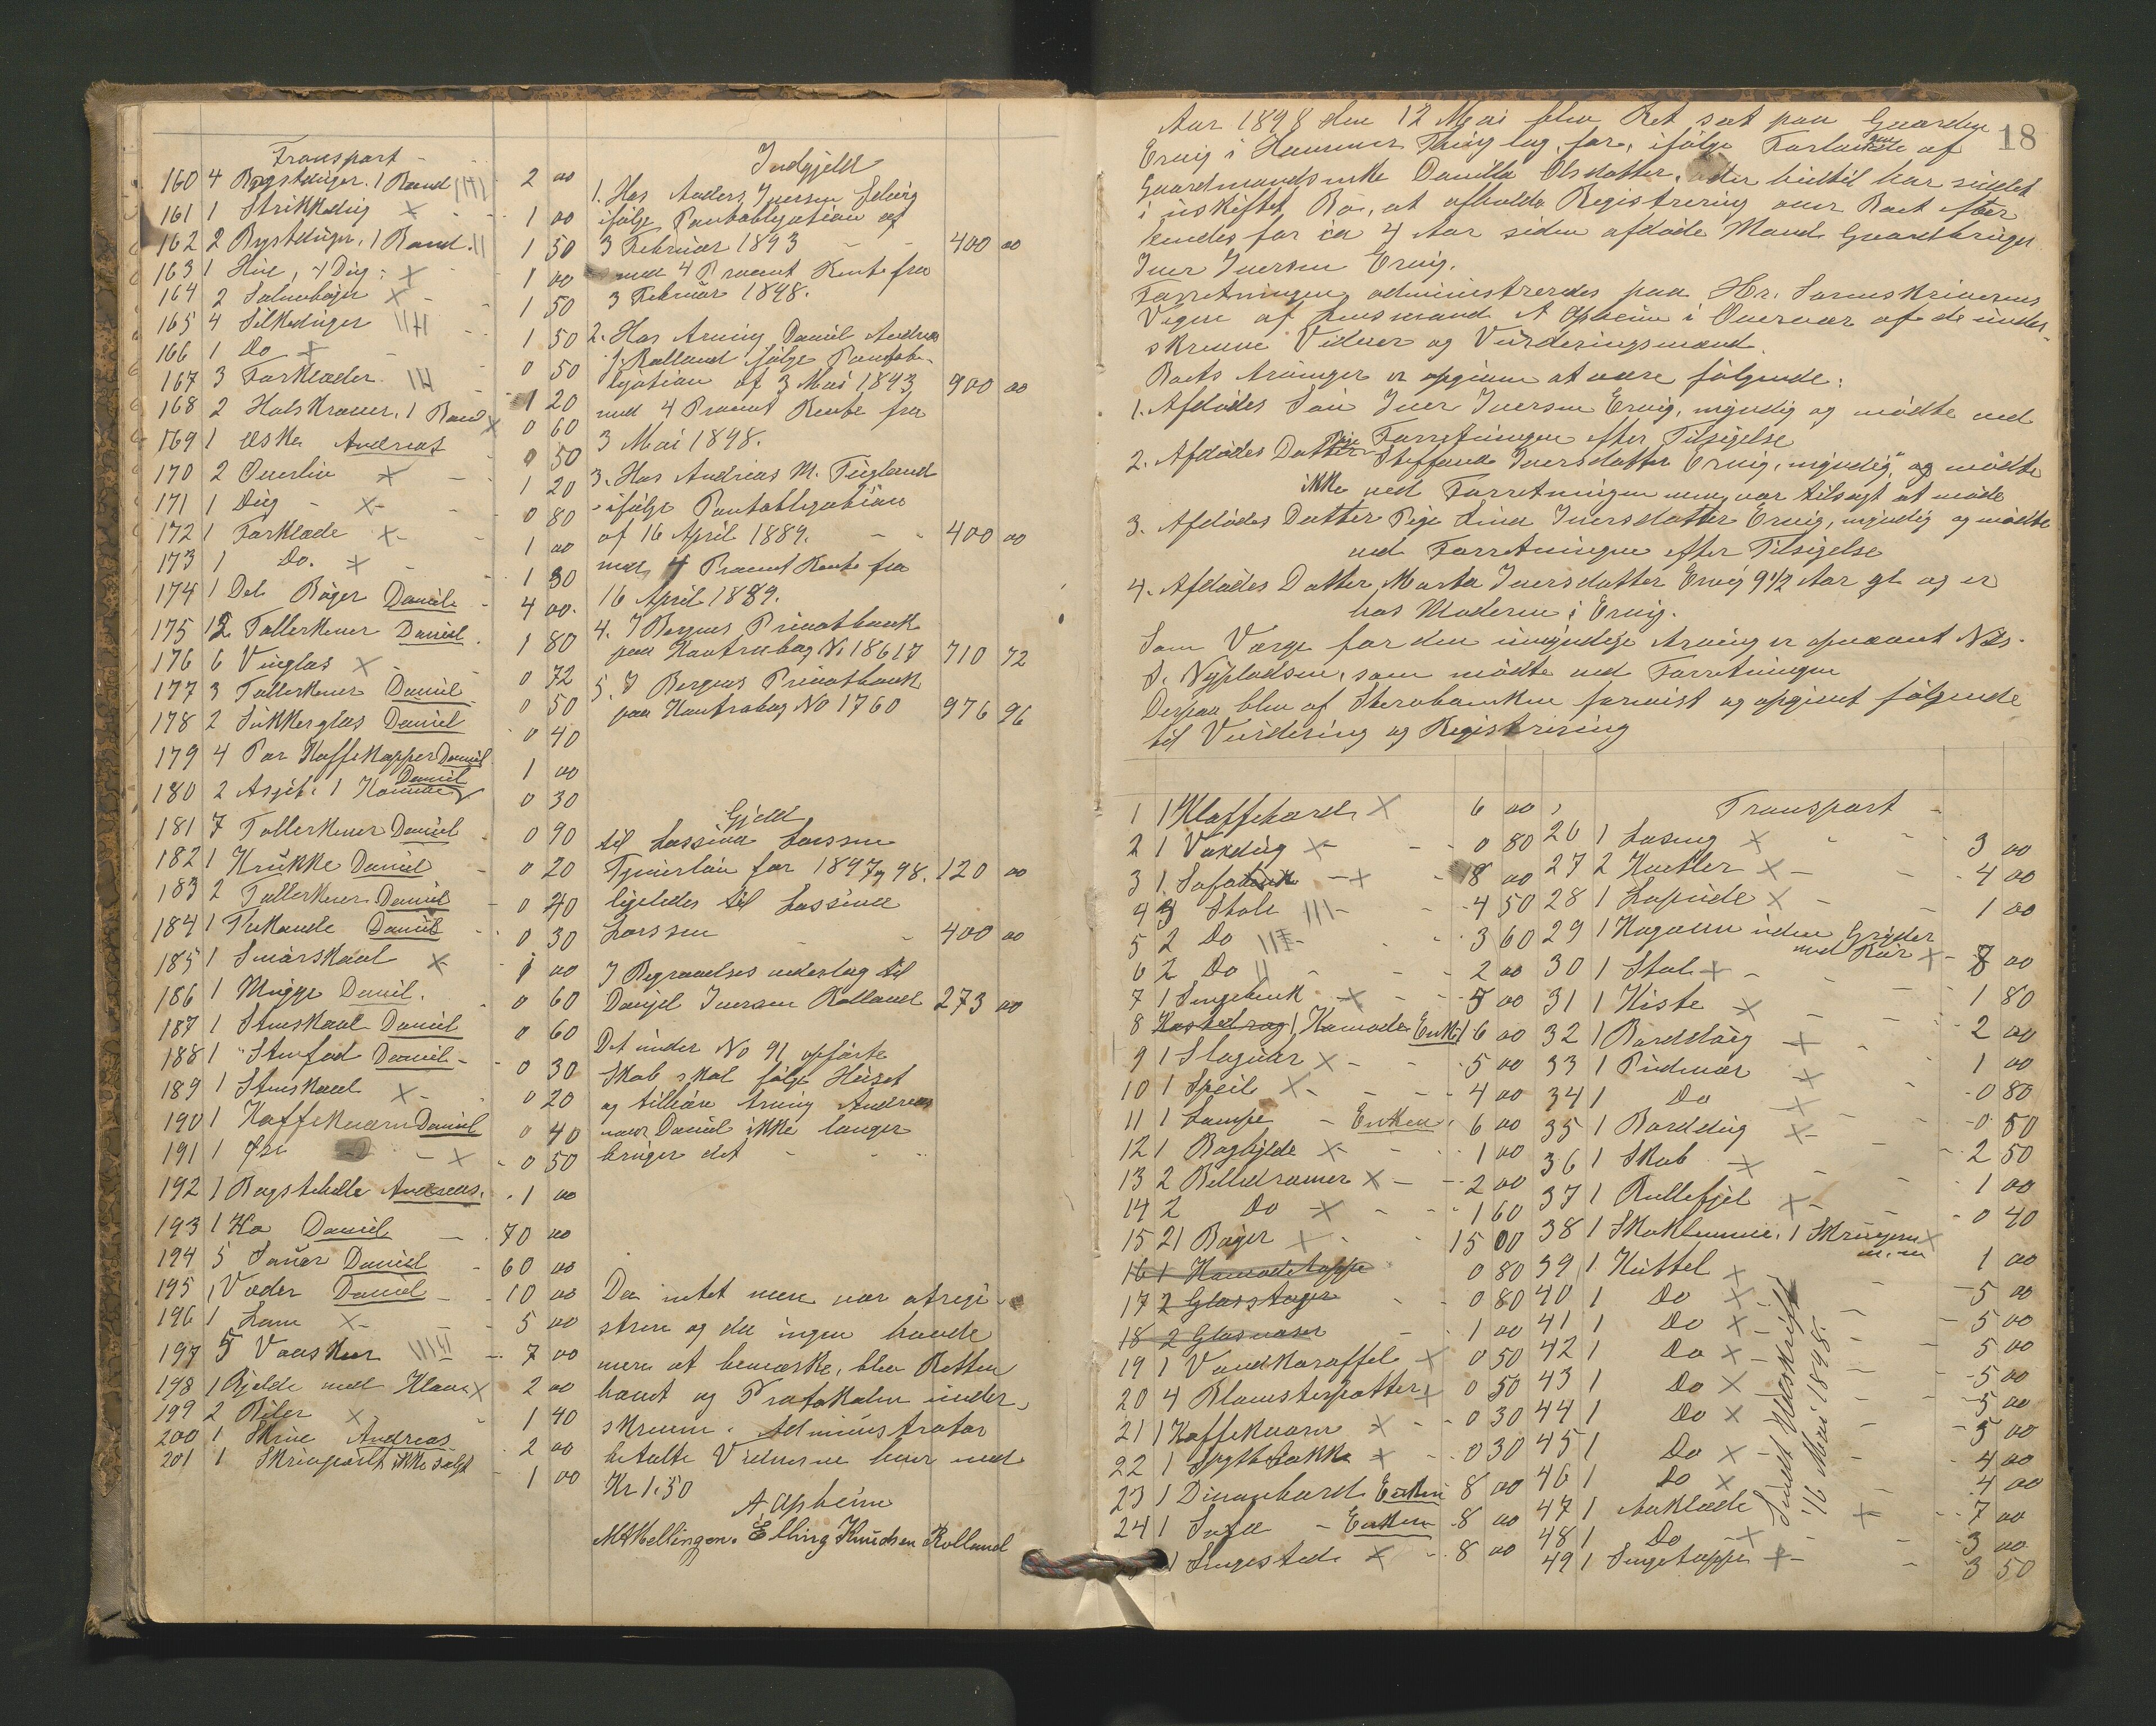 Transport
160 4 Brystduger. 1 Baand 2 00
161 1 Strikkedug 1 00
162 2 Brystduger, 1 Baand. 1 50
163 1 Hue, 4 Dug: 1 00
164 2 Salmebøger 1 50
165 4 Silkeduger 1 50
166 1 Do 0 50
167 3 Forklæder 1 20
168 2 Halskraver, 1 Baand 0 60
169 1 Æske Andreas 0 50
170 2 Overliv 1 20
171 1 Dug 0 80
172 1 Forklæde 1 00
173 1 Do. 1 30
174 1 Del Bøger Daniel 4 00
175 12 Tallerkener Daniel 1 80
176 6 Vinglas 0 72
177 3 Tallerkener Daniel 0 50
178 2 Sukkerglas Daniel 0 40
179 4 Par Kaffekopper Daniel 1 00
180 2 Asjet. 1 Kamme Daniel 0 30
181 7 Tallerkener Daniel 0 90
182 1 Krukke Daniel 0 20
183 2 Tallerkener Daniel 0 40
184 1 Thekande Daniel 0 30
185 1 Smørskaal 1 00
186 1 Mugge Daniel. 0 60
187 1 Stenskaal Daniel 0 60
188 1 Stenfad Daniel 0 30
189 1 Stenskaal 0 20
190 1 Kaffekværn Daniel 0 40
191 1 Øse 0 50
192 1 Bagstehelle Andreas. 1 00
193 1 Ko Daniel 70 00
194 5 Sauer Daniel 60 00
195 1 Væder Daniel 10 00
196 1 Lam 5 00
197 5 7 00
198 1 Bjelde med Klave 2 00
199 2 Biler 1 40
200 1 Skrue Andreas 2 00
201 1 ikke solgt 1 00
Indgjeld
1. Hos Anders Iversen
ifølge Pantobligation af
3 Februar 1893 400 00
med 4 Procent Rente fra
3 Februar 1898.
2. Hos Arving Daniel Andreas
J. Rolland ifølge Pantob-
ligation af 3 Mai 1893 900 00
med 4 Procent Rente fra
3 Mai 1898.
3. Hos Andreas M. Tugland
ifølge Pantobligation
af 16 April 1889. 400 00
med 4 Procent Rente fra
16 April 1889.
4. I Bergens Privatbank
paa Kontrabog No 18617 710 72
5. I Bergens Privatbank
paa Kontrabog No 1760 976 96
Gjeld
til Lassina Larssen
Tjenerløn for 1897 og 98. 120 00
ligeledes til Lassina
Larssen 400 00
I Begravelses udestag til
Danjel Iversen Rolland 273 00
Det under No 91 opførte
Skab skal følge Huset
og tilhøre Arving Andreas
naar Daniel ikke længer
bruger det
Da intet mere var at regi-
strere og da ingen havde
mere at bemærke, blev Retten
hævet og Protokolen under-
skreven. Administrator
betalte Vidnerne hver med
Kr 1.50
A Opheim
M A Mellingen. Elling Knudsen Rolland
18
Aar 1898 den 12 Mai blev Ret sat paa Gaarden
Ervig i Hammer Thinglag, for, ifølge Forlangende af
Gaardmandsenke Danilla Olsdatter, der hidtil har siddet
i uskiftet Bo, at afholde Registrering over Boet efter
hendes for ca 4 Aar siden afdøde Mand Gaardbruger
Iver Iversen Ervig.
Forretningen administreredes paa Hr. Sorenskriverens
Vegne af Lensmand A Opheim i Overvær af de under-
skrevne Vidner og Vurderingsmænd.
Boets Arvinger er opgivne at være følgende:
1. Afdødes Søn Iver Iversen Ervig, myndig og mødte ved
Forretningen efter Tilsigelse
2. Afdødes Datter Pige Steffance Iversdatter Ervig, myndig, og mødte
ikke ved Forretningen men var tilsagt at møde
3. Afdødes Datter Pige Lina Iversdatter Ervig, myndig og mødte
ved Forretningen efter Tilsigelse
4. Afdødes Datter Marta Iversdatter Ervig 9 1/2 Aar gl og er
hos Moderen i Ervig.
Som Værge for den umyndige Arving er opnævnt Nils
S. Nypladsen, som mødte ved Forretningen
Derpaa blev af Stervboenken forevist og opgivet følgende
til Vurdering og Registrering
1 1 Klaffebord 6 00
2 1 Voxdug 0 80
3 1 Sofabænk 8 00
4 3 Stole 4 50
5 2 Do 3 60
6 2 Do 2 00
7 1 Sengebænk 5 00
8 1 Komode Enken 16 00
9 1 Slaguhr 5 00
10 1 Speil 4 00
11 1 Lampe Enken 6 00
12 1 Boghylde 1 00
13 2 Billedramer 2 00
14 2 Do 1 60
15 21 Bøger 15 00
16 1 Komodetæppe 0 80
17 2 Glasstager 0 80
18 2 Glasvaser 1 00
19 1 Vandkaraffel 0 50
20 4 Blomsterpotter 0 50
21 1 Kaffekværn 0 30
22 1 Spyttebakke 0 30
23 1 Divanbord Enken 8 00
24 1 Sofa Enken 8 00
1 Sengested 8 00
Transport
26 1 Lasseng 3 00
27 2 Kofter 4 00
28 1 Lapude 1 00
29 1 Kogeovn uden Gryder
med Rør 8 00
30 1 Stol 1 80
31 1 Kiste 2 00
32 1 Bordslag 1 00
33 1 Pudevar 0 80
34 1 Do 0 50
35 1 Borddug 2 50
36 1 Skab 1 00
37 1 Rullefjel 0 40
38 1 Skoklemme, 1 Skruejern
m.m 1 00
39 1 Kuttel 5 00
40 1 Do 5 00
41 1 Do 5 00
42 1 Do 5 00
43 1 Do 5 00
44 1 Do 5 00
45 1 Do 4 00
46 1 Do 4 00
47 1 Aaklæde 7 00
48 1 Do 3 00
49 1 Sengetæppe 3 50
Sendt Udskrift
16 Mai 1898.